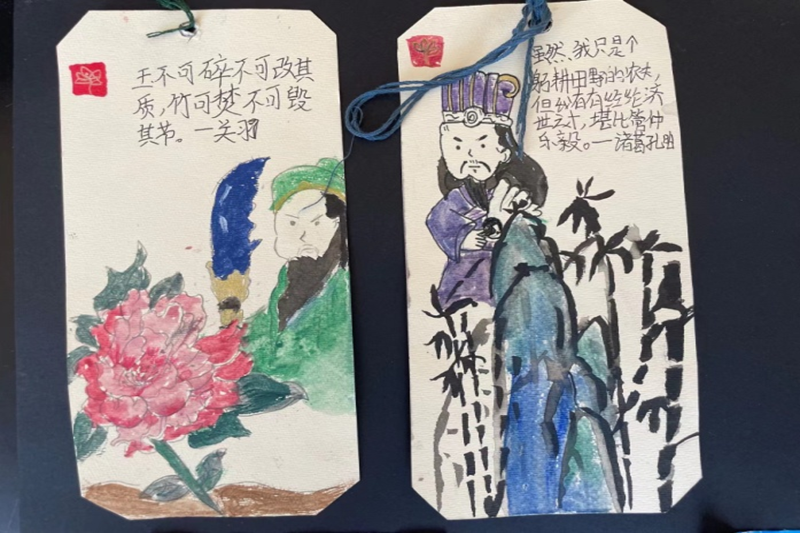 王不可碎不可改其
质,竹可梦不可毁
其节。—关羽
虽然、我只是个
躬耕田野的农夫,
但有有经纶济
世之才,堪比管仲
乐毅。—诸葛孔明